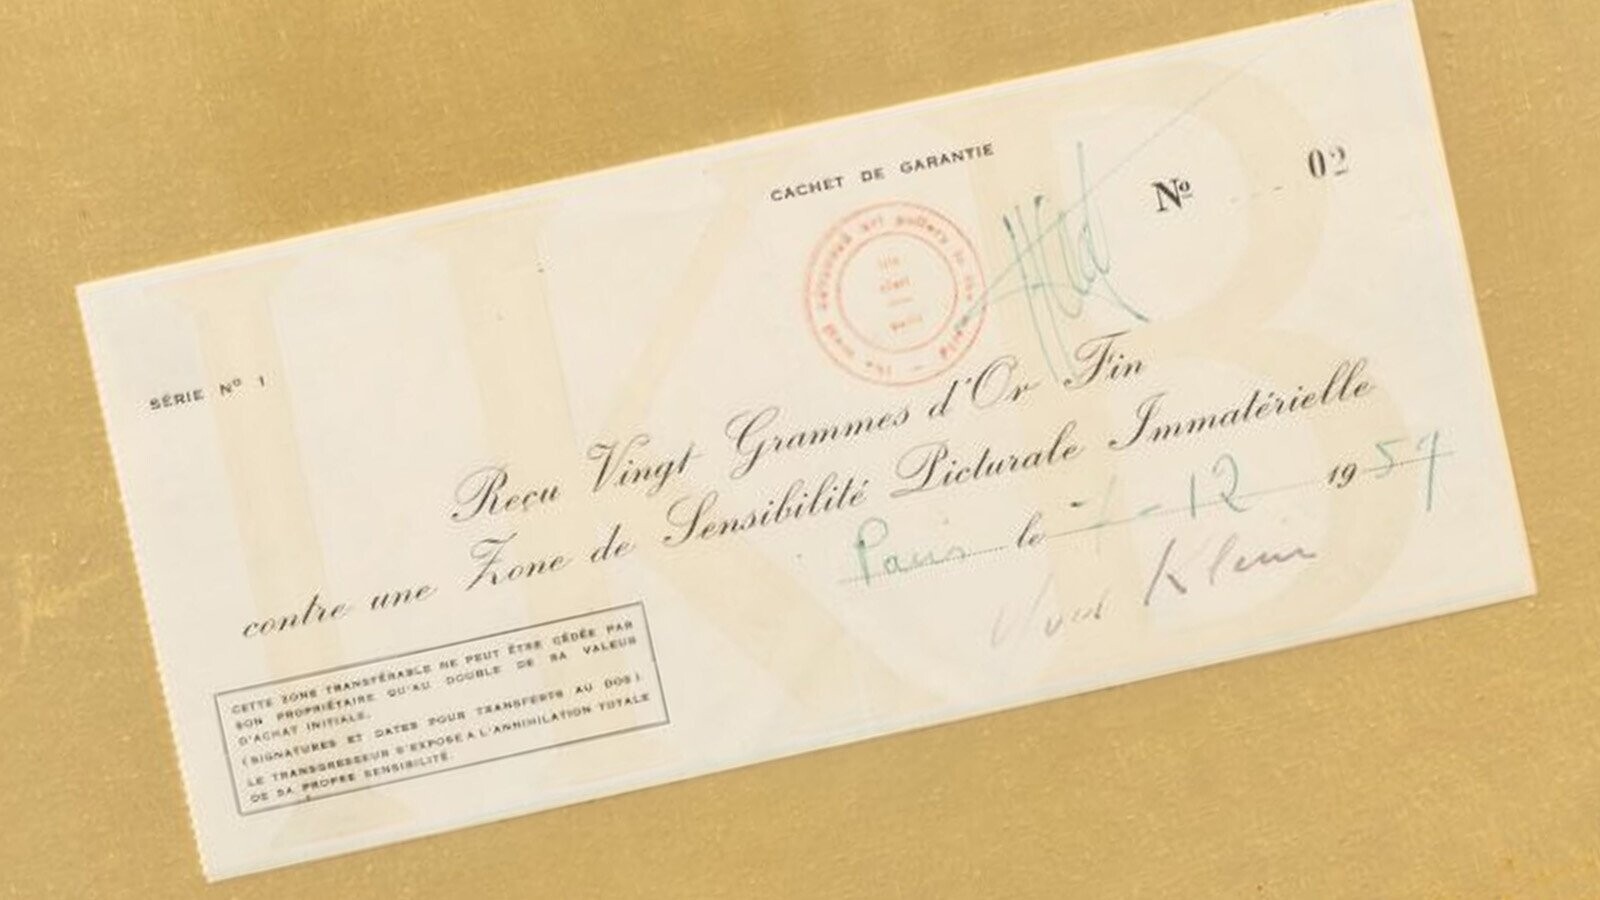 CACHET DE GARANTIE
Nº 02
SÉRIE Nº 1
Reçu Vingt Grammes d'Or Fin
contre une Zone de Sensibilité Picturale Immatérielle
Paris le 7-12 1959
Yves Klein
CETTE ZONE TRANSFÉRABLE NE PEUT ÊTRE CÉDÉE PAR
SON PROPRIÉTAIRE QU'AU DOUBLE DE SA VALEUR
D'ACHAT INITIALE.
(SIGNATURES ET DATES POUR TRANSFERTS AU DOS).
LE TRANSGRESSEUR S'EXPOSE A L'ANNIHILATION TOTALE
DE SA PROPRE SENSIBILITÉ.